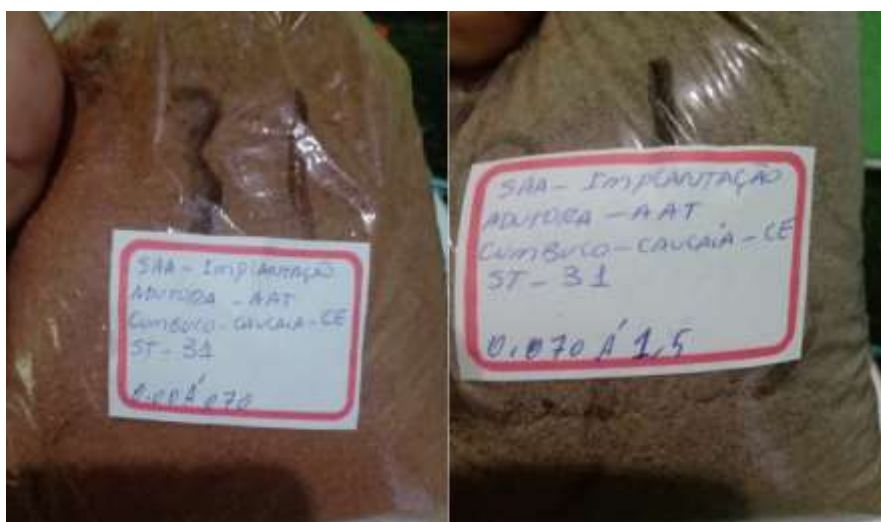 SAA - IMPLANTAÇÃO
ADUTORA - AAT
CUMBUCO - CAUCAIA - CE
ST - 31
0.00 Á 070
SAA - IMPLANTAÇÃO
ADUTORA - AAT
CUMBUCO - CAUCAIA - CE
ST - 31
0.070 Á 1,5